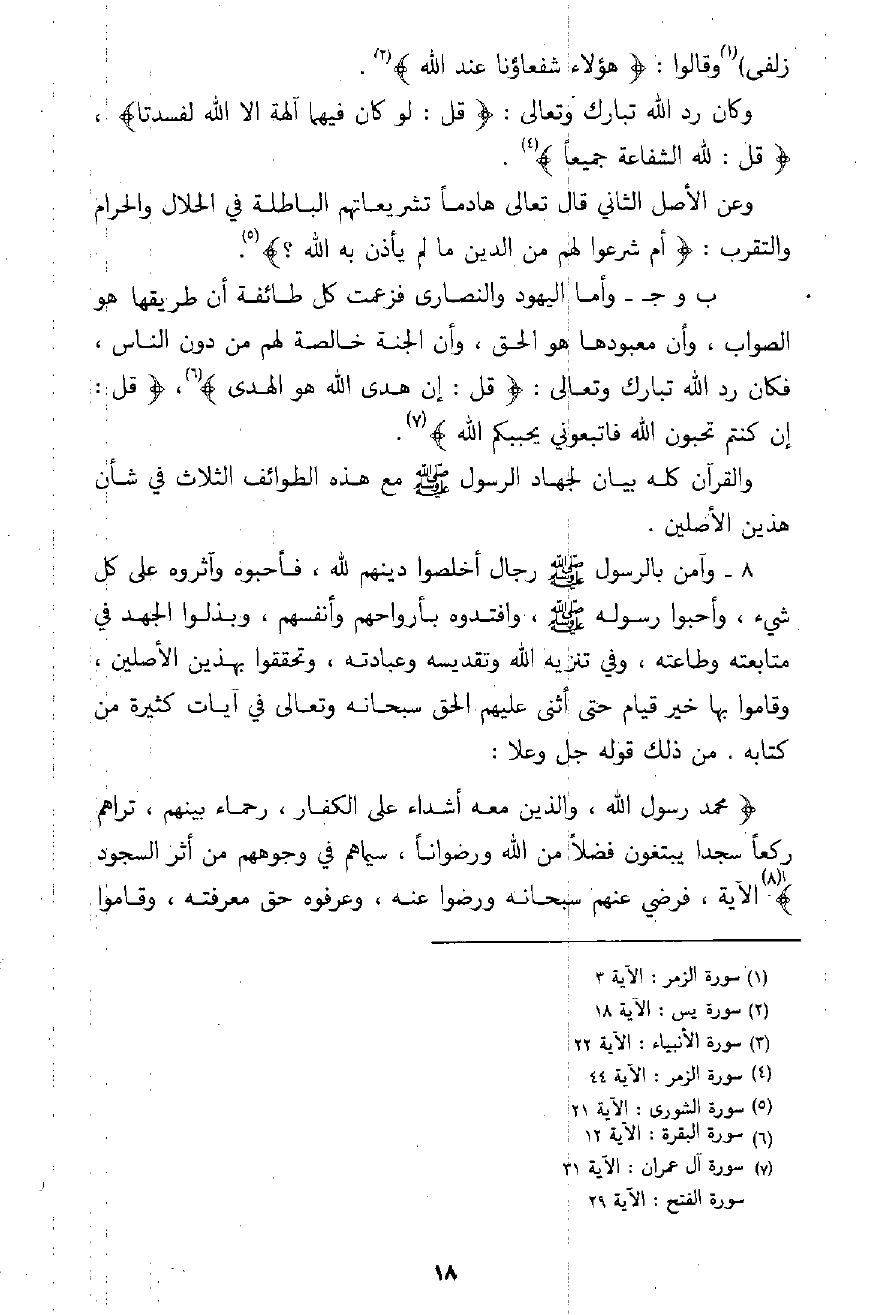 زلفى)(١)وقالوا : ﴿ هؤلاء شفعاؤنا عند الله ﴾(٢) .
وكان رد الله تبارك وتعالى : ﴿ قل : لو كان فيهما آلهة الا الله لفسدتا﴾ ،
﴿ قل : لله الشفاعة جميعاً ﴾(٤) .
وعن الأصل الثاني قال تعالى هادماً تشريعاتهم الباطلة في الحلال والحرام
والتقرب : ﴿ أم شرعوا لهم من الدين ما لم يأذن به الله ؟﴾(٥).
ب و جـ ـ وأما اليهود والنصارى فزعمت كل طائفة أن طريقها هو
الصواب ، وأن معبودها هو الحق ، وأن الجنة خالصة لهم من دون الناس ،
فكان رد الله تبارك وتعالى : ﴿ قل : إن هدى الله هو الهدى ﴾(٦)، ﴿ قل :
إن كنتم تحبون الله فاتبعوني يحببكم الله ﴾(٧).
والقرآن كله بيان لجهاد الرسول ﷺ مع هذه الطوائف الثلاث في شأن
هذين الأصلين .
٨ ـ وآمن بالرسول ﷺ رجال أخلصوا دينهم لله ، فأحبوه وآثروه على كل
شيء ، وأحبوا رسوله ﷺ ، وافتدوه بأرواحهم وأنفسهم ، وبذلوا الجهد في
متابعته وطاعته ، وفي تنزيه الله وتقديسه وعبادته ، وتحققوا بهذين الأصلين ،
وقاموا بها خير قيام حتى أثنى عليهم الحق سبحانه وتعالى في آيات كثيرة من
كتابه . من ذلك قوله جل وعلا :
﴿ محمد رسول الله ، والذين معه أشداء على الكفار ، رحماء بينهم ، تراهم
ركعاً سجدا يبتغون فضلاً من الله ورضواناً ، سيماهم في وجوههم من أثر السجود
﴾(٨) الآية ، فرضي عنهم سبحانه ورضوا عنه ، وعرفوه حق معرفته ، وقاموا
(١) سورة الزمر : الآية ٣
(٢) سورة يس : الآية ١٨
(٣) سورة الأنبياء : الآية ٢٢
(٤) سورة الزمر : الآية ٤٤
(٥) سورة الشورى : الآية ٢١
(٦) سورة البقرة : الآية ١٢
(٧) سورة آل عمران : الآية ٣١
سورة الفتح : الآية ٢٩
١٨